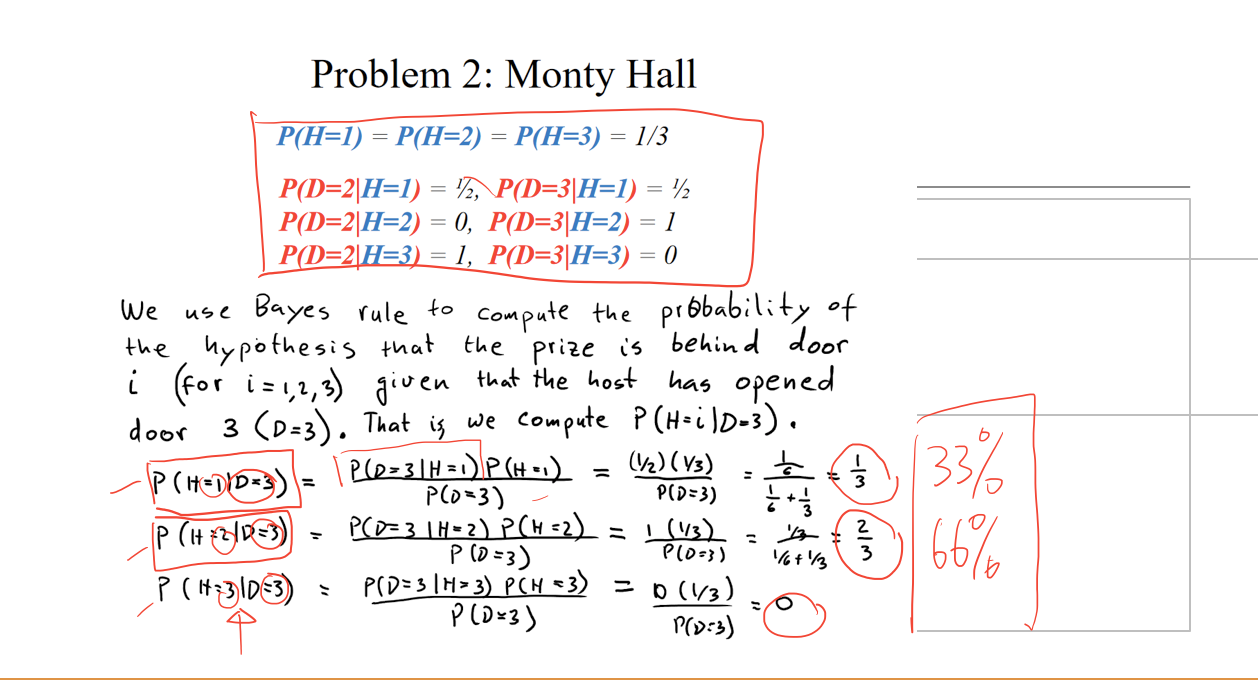 Problem 2: Monty Hall
P(H=1) = P(H=2) = P(H=3) = 1/3
P(D=2|H=1) = ½, P(D=3|H=1) = ½
P(D=2|H=2) = 0, P(D=3|H=2) = 1
P(D=2|H=3) = 1, P(D=3|H=3) = 0
We use Bayes rule to compute the probability of
the hypothesis that the prize is behind door
i (for i=1,2,3) given that the host has opened
door 3 (D=3). That is we compute P(H=i|D=3).
P(H=1|D=3) = P(D=3|H=1) P(H=1) / P(D=3) = (1/2)(1/3) / P(D=3) = 1/6 / (1/6 + 1/3) = 1/3 33%
P(H=2|D=3) = P(D=3|H=2) P(H=2) / P(D=3) = 1 (1/3) / P(D=3) = 1/3 / (1/6 + 1/3) = 2/3 66%
P(H=3|D=3) = P(D=3|H=3) P(H=3) / P(D=3) = 0 (1/3) / P(D=3) = 0